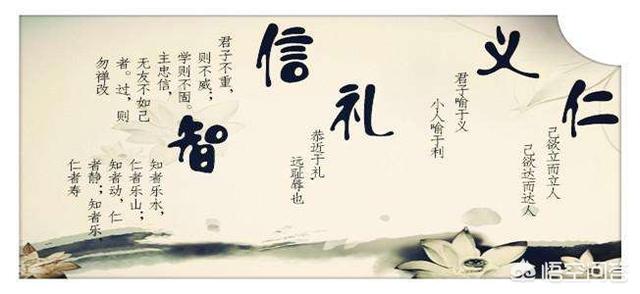 仁
己欲立而立人
己欲达而达人
义
君子喻于义
小人喻于利
礼
恭近于礼,
远耻辱也
信
君子不重,
则不威;
学则不固。
主忠信,
无友不如己
者。过,则
勿禅改
智
知者乐水,
仁者乐山;
知者动,仁
者静;知者乐,
仁者寿
悟空问答